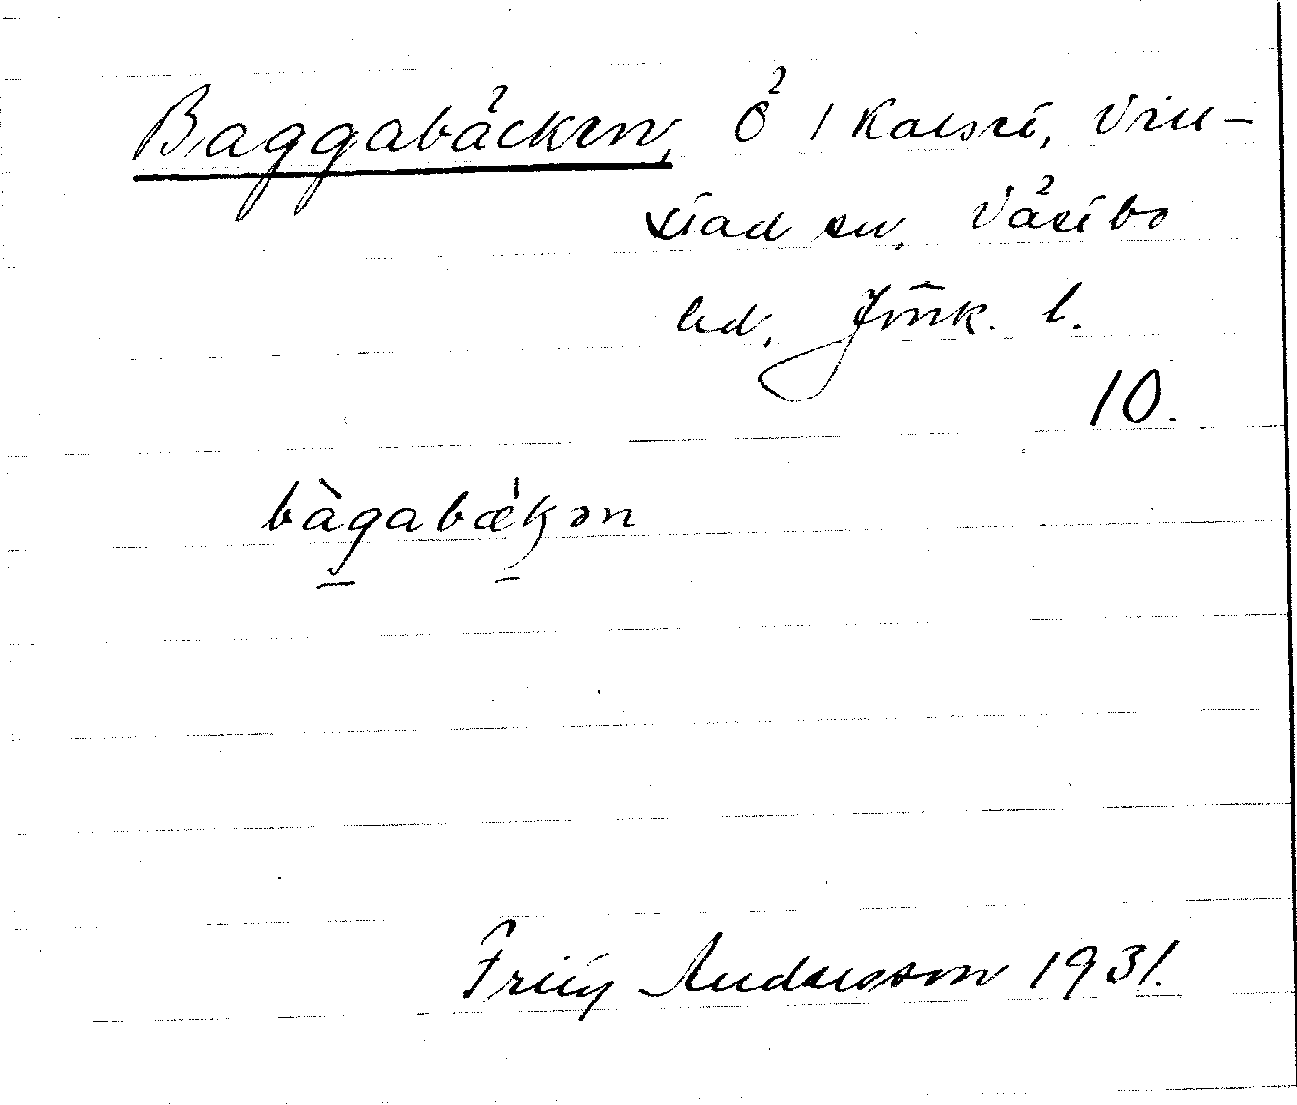 Baggabäcken, Ö i Kalset, Vill-
stad sn, Västbo
hd, Jönk. l.
10.
bàgabæ̀kən
Fritz Andersson 1931.